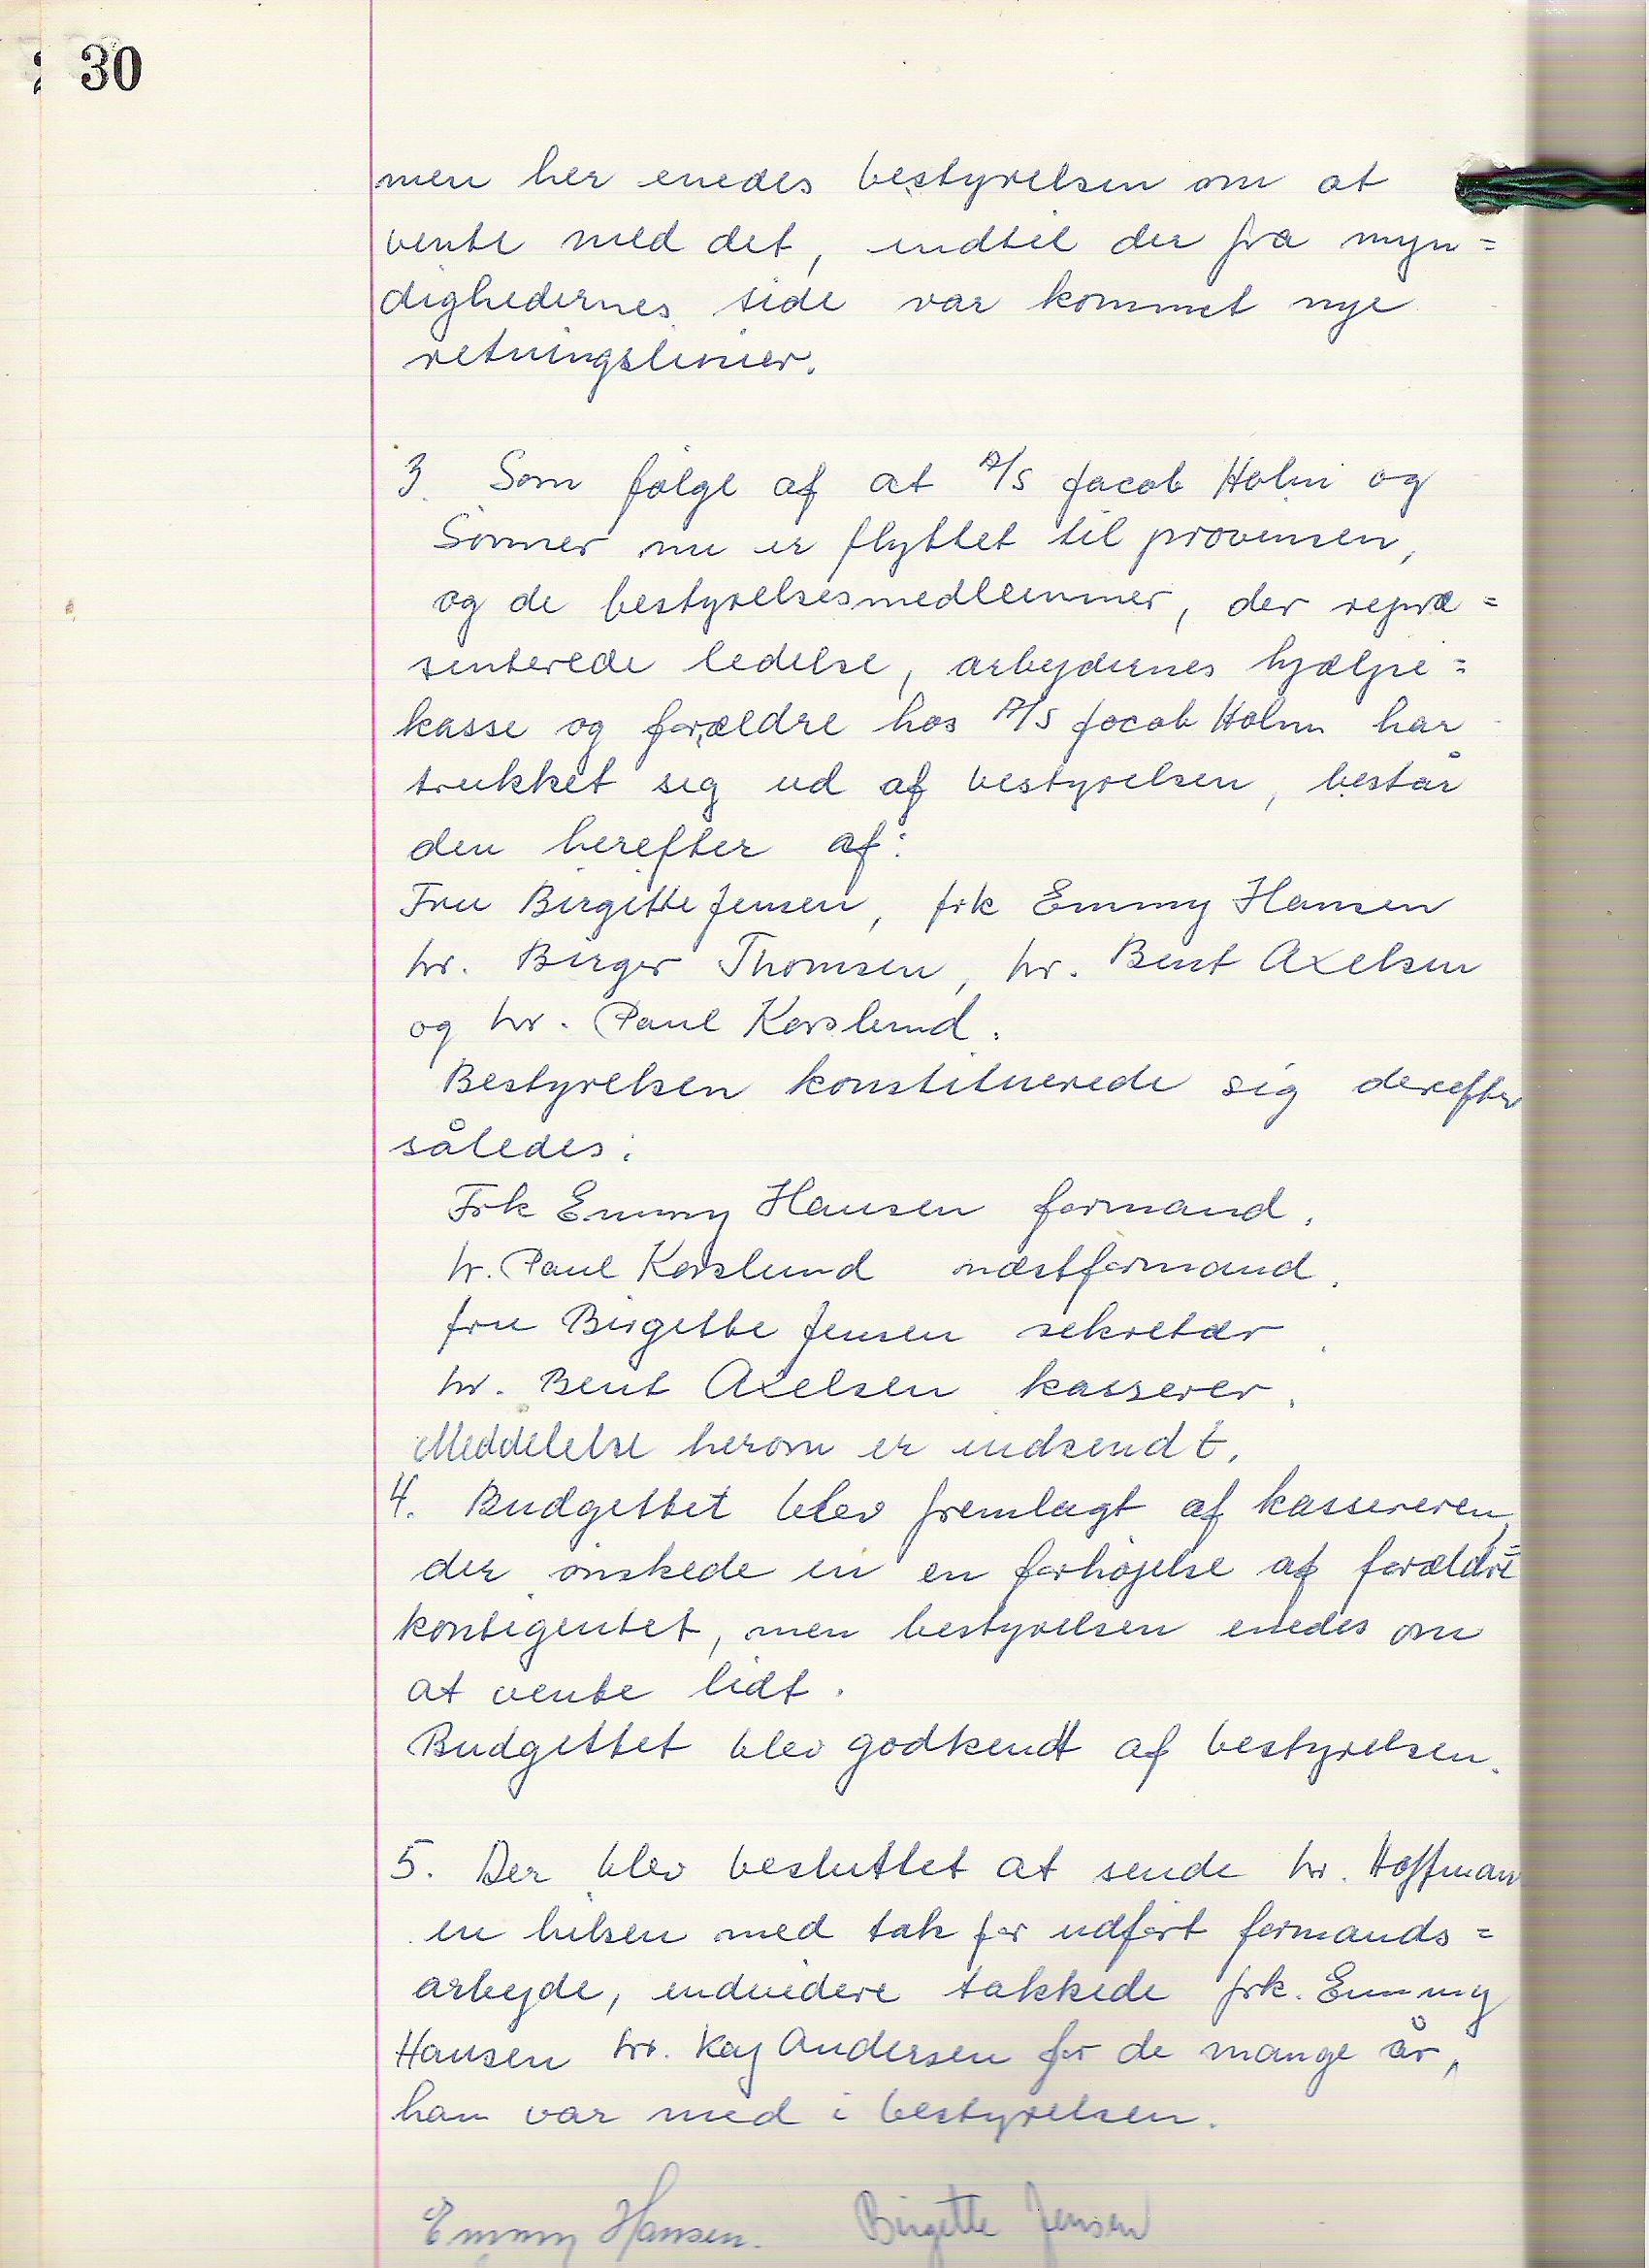 30
men her enedes bestyrelsen om at
vente med det, indtil der fra myn=
dighedernes side var kommet nye
retningslinier.
3. Som følge af at A/S Jacob Holm og
Sønner nu er flyttet til provinsen,
og de bestyrelsesmedlemmer, der repræ=
senterede ledelse, arbejdernes hjælpe=
kasse og forældre hos A/S Jacob Holm har
trukket sig ud af bestyrelsen, består
den herefter af:
Fru Birgitte Jensen, frk Emmy Hansen
hr. Birger Thomsen, hr. Bent Axelsen
og hr. Paul Korslund.
Bestyrelsen konstituerede sig derefter
således:
Frk Emmy Hansen formand.
hr. Paul Korslund næstformand.
fru Birgitte Jensen sekretær.
hr. Bent Axelsen kasserer.
Meddelelse herom er indsendt.
4. Budgettet blev fremlagt af kassereren,
der ønskede en en forhøjelse af forældre=
kontigentet, men bestyrelsen enedes om
at vente lidt.
Budgettet blev godkendt af bestyrelsen.
5. Der blev besluttet at sende hr. Hoffman
en hilsen med tak for udført formands=
arbejde, endvidere takkede frk. Emmy
Hansen hr. Kaj Andersen for de mange år,
han var med i bestyrelsen.
Emmy Hansen. Birgitte Jensen